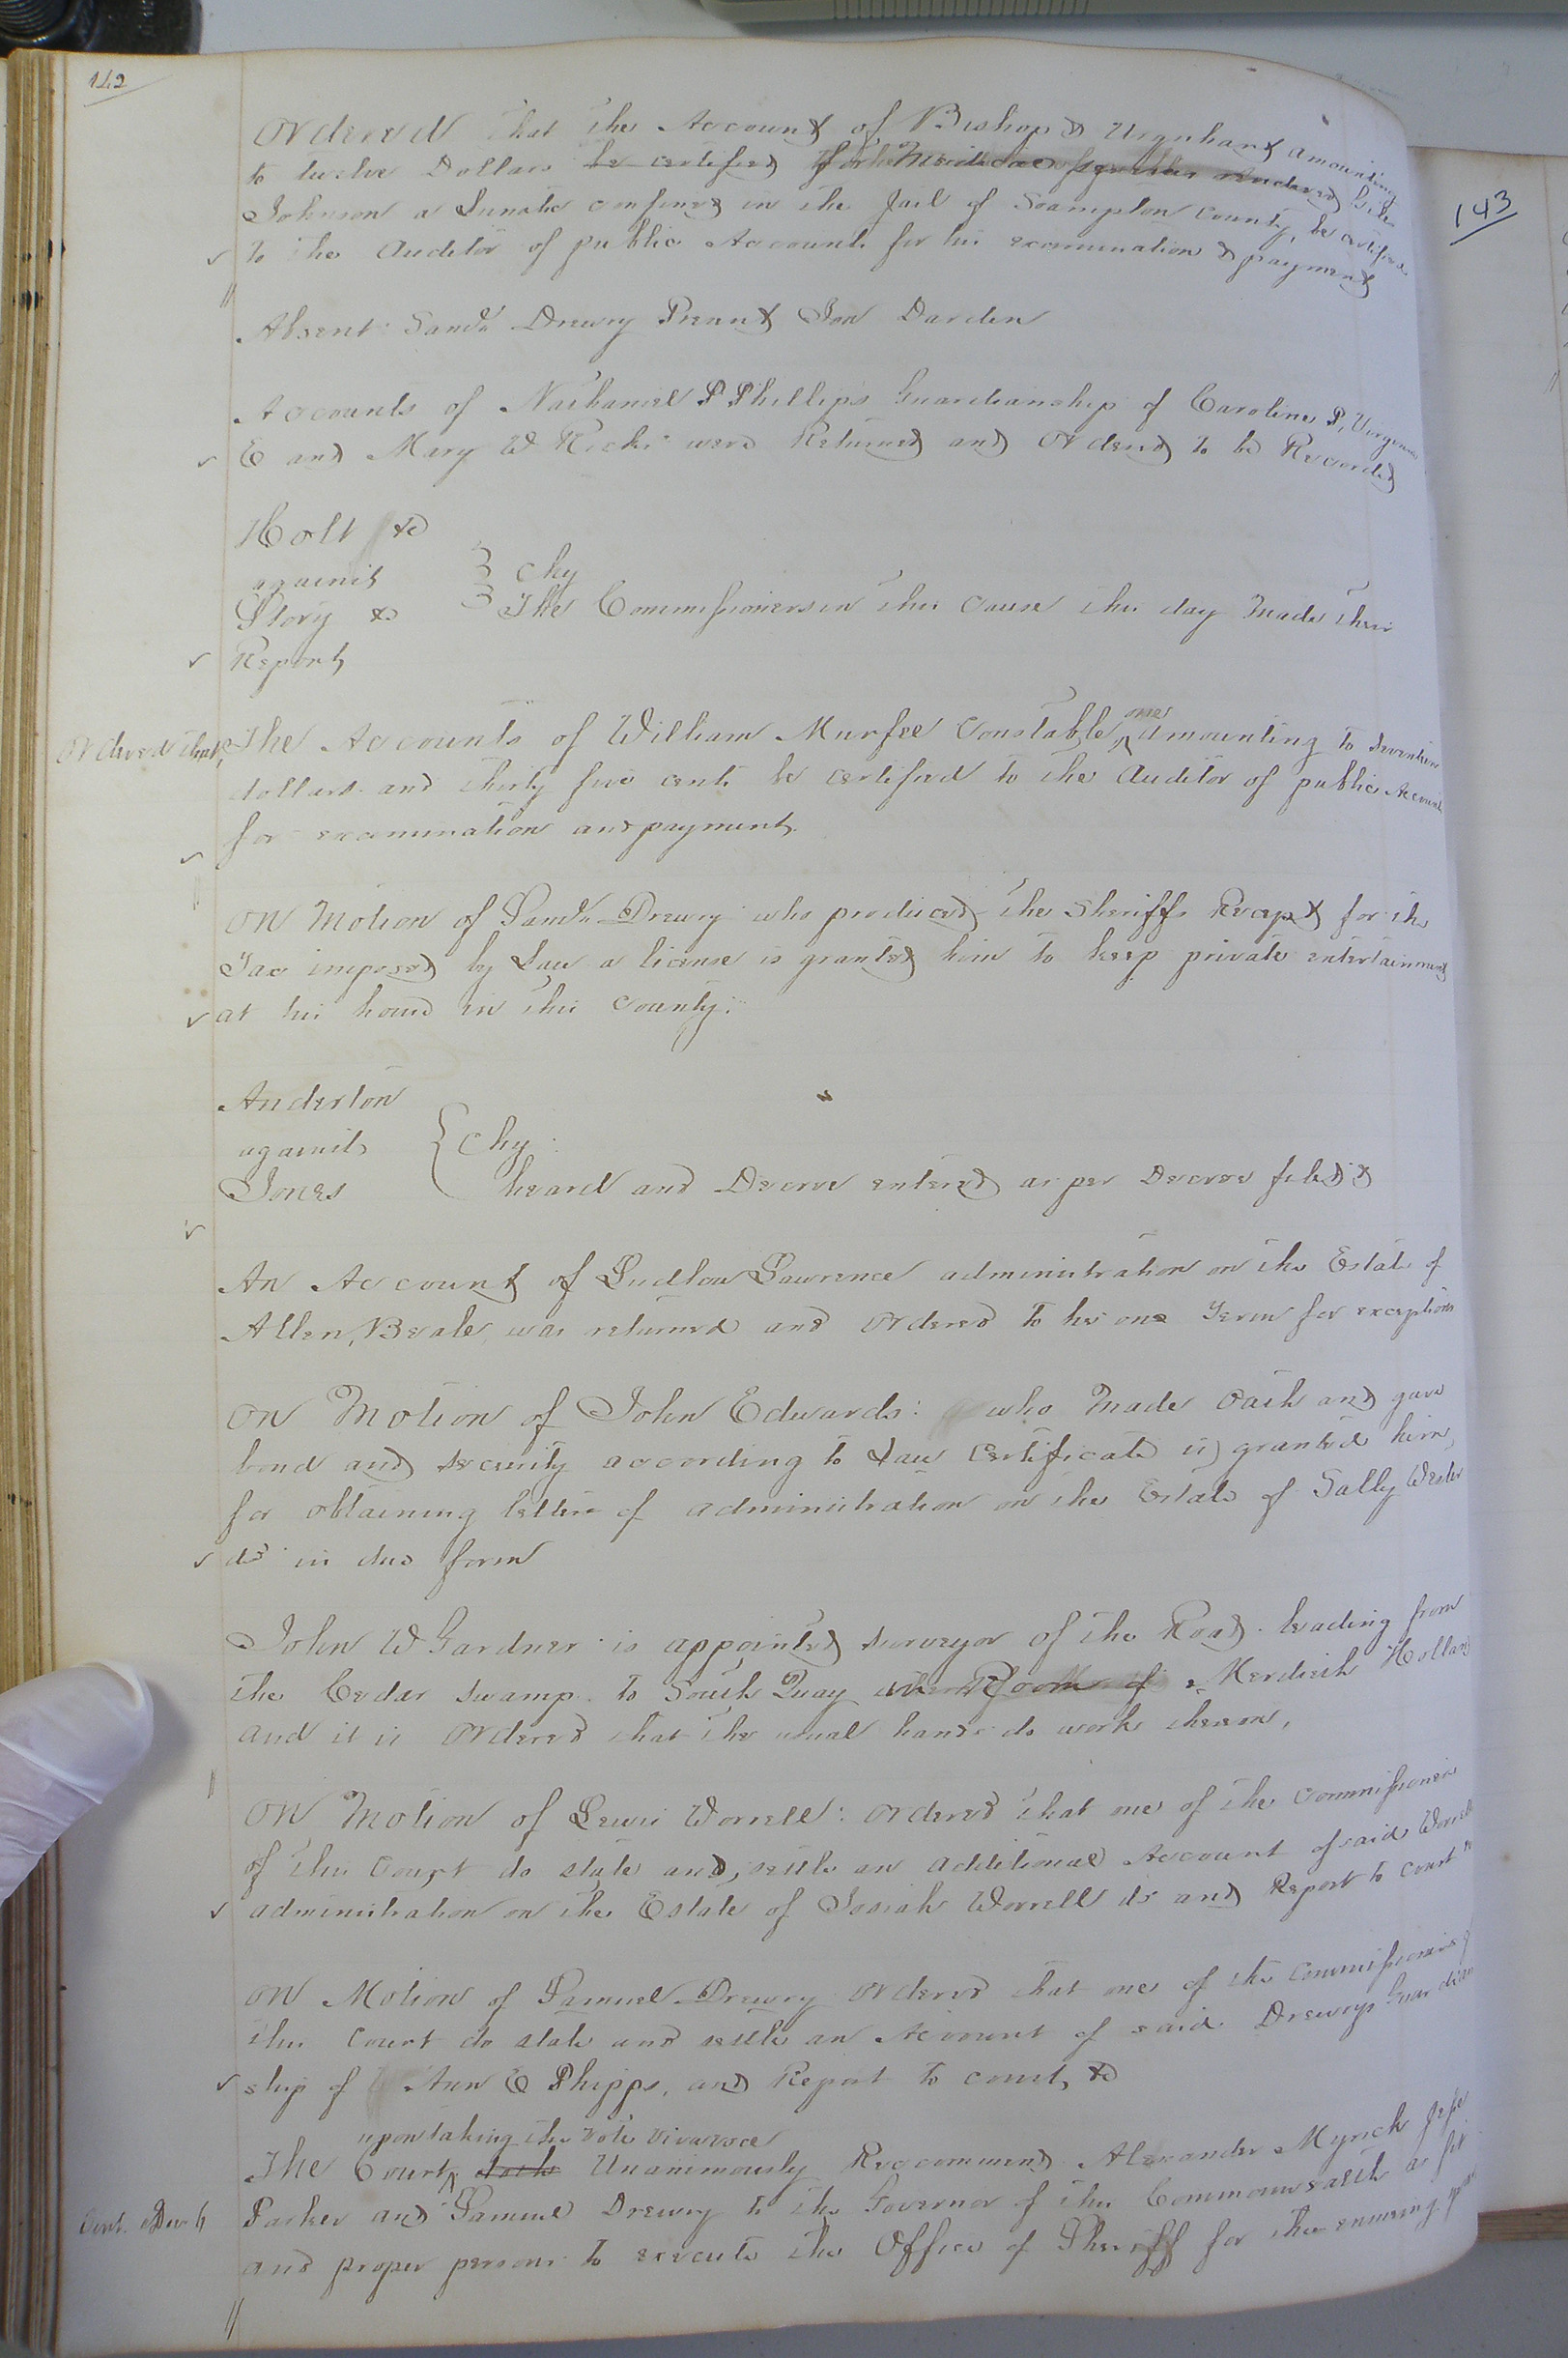 142
143
Ordered that the Account of Bishop & Urquhart amounting
to twelve Dollars be certified for Medical services rendered
Johnson a Lunatic confined in the Jail of Soampton County, be certified
to the Auditor of public Accounts for his examination & payment
Absent Saml Drewry Present Jon Darden
Accounts of Nathaniel P Phillips Guardianship of Caroline P, Virginia
E and Mary W Ricks were Returned and Ordered to be Recorded
Holt &c
against } Chy
Story &c The Commissioners in this cause this day made their
Report
Ordered that The Accounts of William Murfee Constable, one amounting to Seventeen
dollars and thirty five cents be certified to the Auditor of public Accounts
for examination and payment.
On Motion of Saml Drewry who produced the Sheriffs Recept for the
Tax imposed by Law a license is granted him to keep private entertainment
at his house in this County.
Anderton
against { Chy
Jones heard and Decree entered as per Decree filed &
An Account of Ludlow Lawrence administration on the Estate of
Allen Beale was returned and Ordered to lie one Term for exceptions
On Motion of John Edwards: who Made Oath and gave
bond and security according to Law Certificate is granted him
for obtaining letters of administration on the Estate of Sally Wester
dd in due form
John W Gardner is appointed surveyor of the Road leading from
the Cedar Swamp to South Quay in the Room of Merdich Holland
and it is Ordered that the usual hands do work thereon,
On Motion of Lewis Worrell: ordered that one of the Commissioners
of this Court do state and settle an additional Account of said Worrell
administration on the Estate of Josiah Worrell dd and Report to court
On Motion of Samuel Drewry Ordered that one of the Commissioners of
this Court do state and settle an Account of said Drewrys Guardian
ship of Ann E Phipps, and Report to court &c
upon taking the vote vivavoce
The Court doth Unanimously Reccommend Alexander Myrick
Parker and Samuel Drewry to the Governor of this Commonwealth as fit
and proper persons to execute the Office of Sheriff for the ensuing